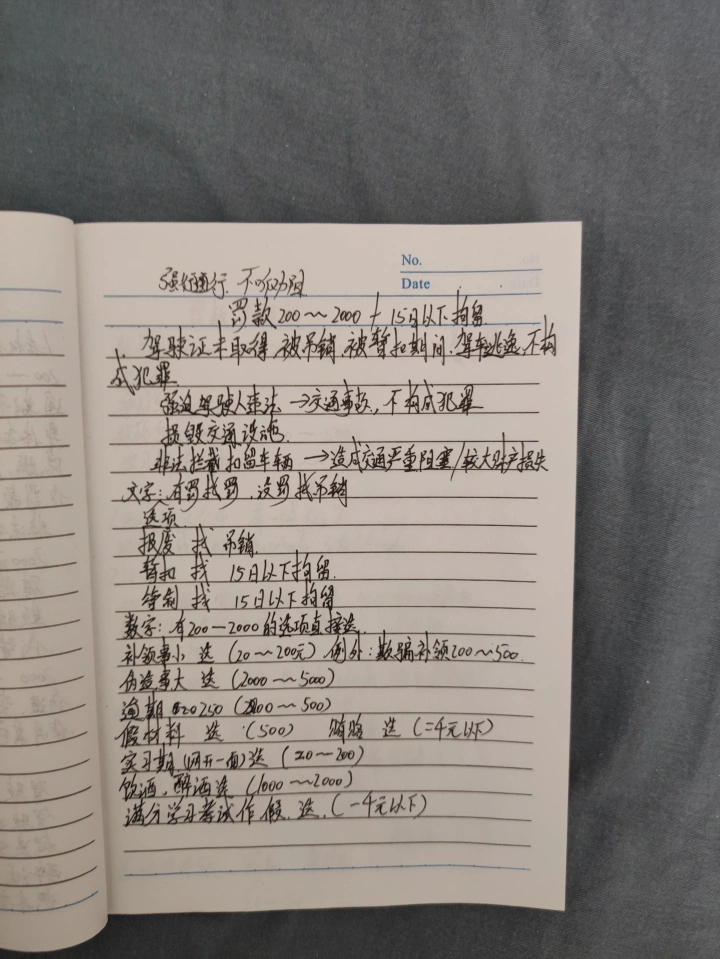 No.
Date
强行通行.不听劝阻
罚款200～2000+15日以下拘留
.驾驶证未取得.被吊销.被暂扣期间.驾车逃逸,不构
成犯罪
强迫驾驶人违法→交通事故,不构成犯罪
损毁交通设施.
非法拦截扣留车辆→造成交通严重阻塞/较大财产损失
文字:有罚找罚,没罚找吊销
选项
报废 找 吊销.
暂扣 找 15日以下拘留.
牵制 找 15日以下拘留
数字:有200—2000的选项直接选.
补领事小 选 (20～200元) 例外:欺骗补领200～500.
伪造事大 选 (2000～5000)
逾期 250 (200～500)
假材料 选 (500) 贿赂 选 (二千元以下)
实习期(网开一面)选 (20～200)
饮酒,醉酒选 (1000～2000)
满分学习考试作假.选.(一千元以下)